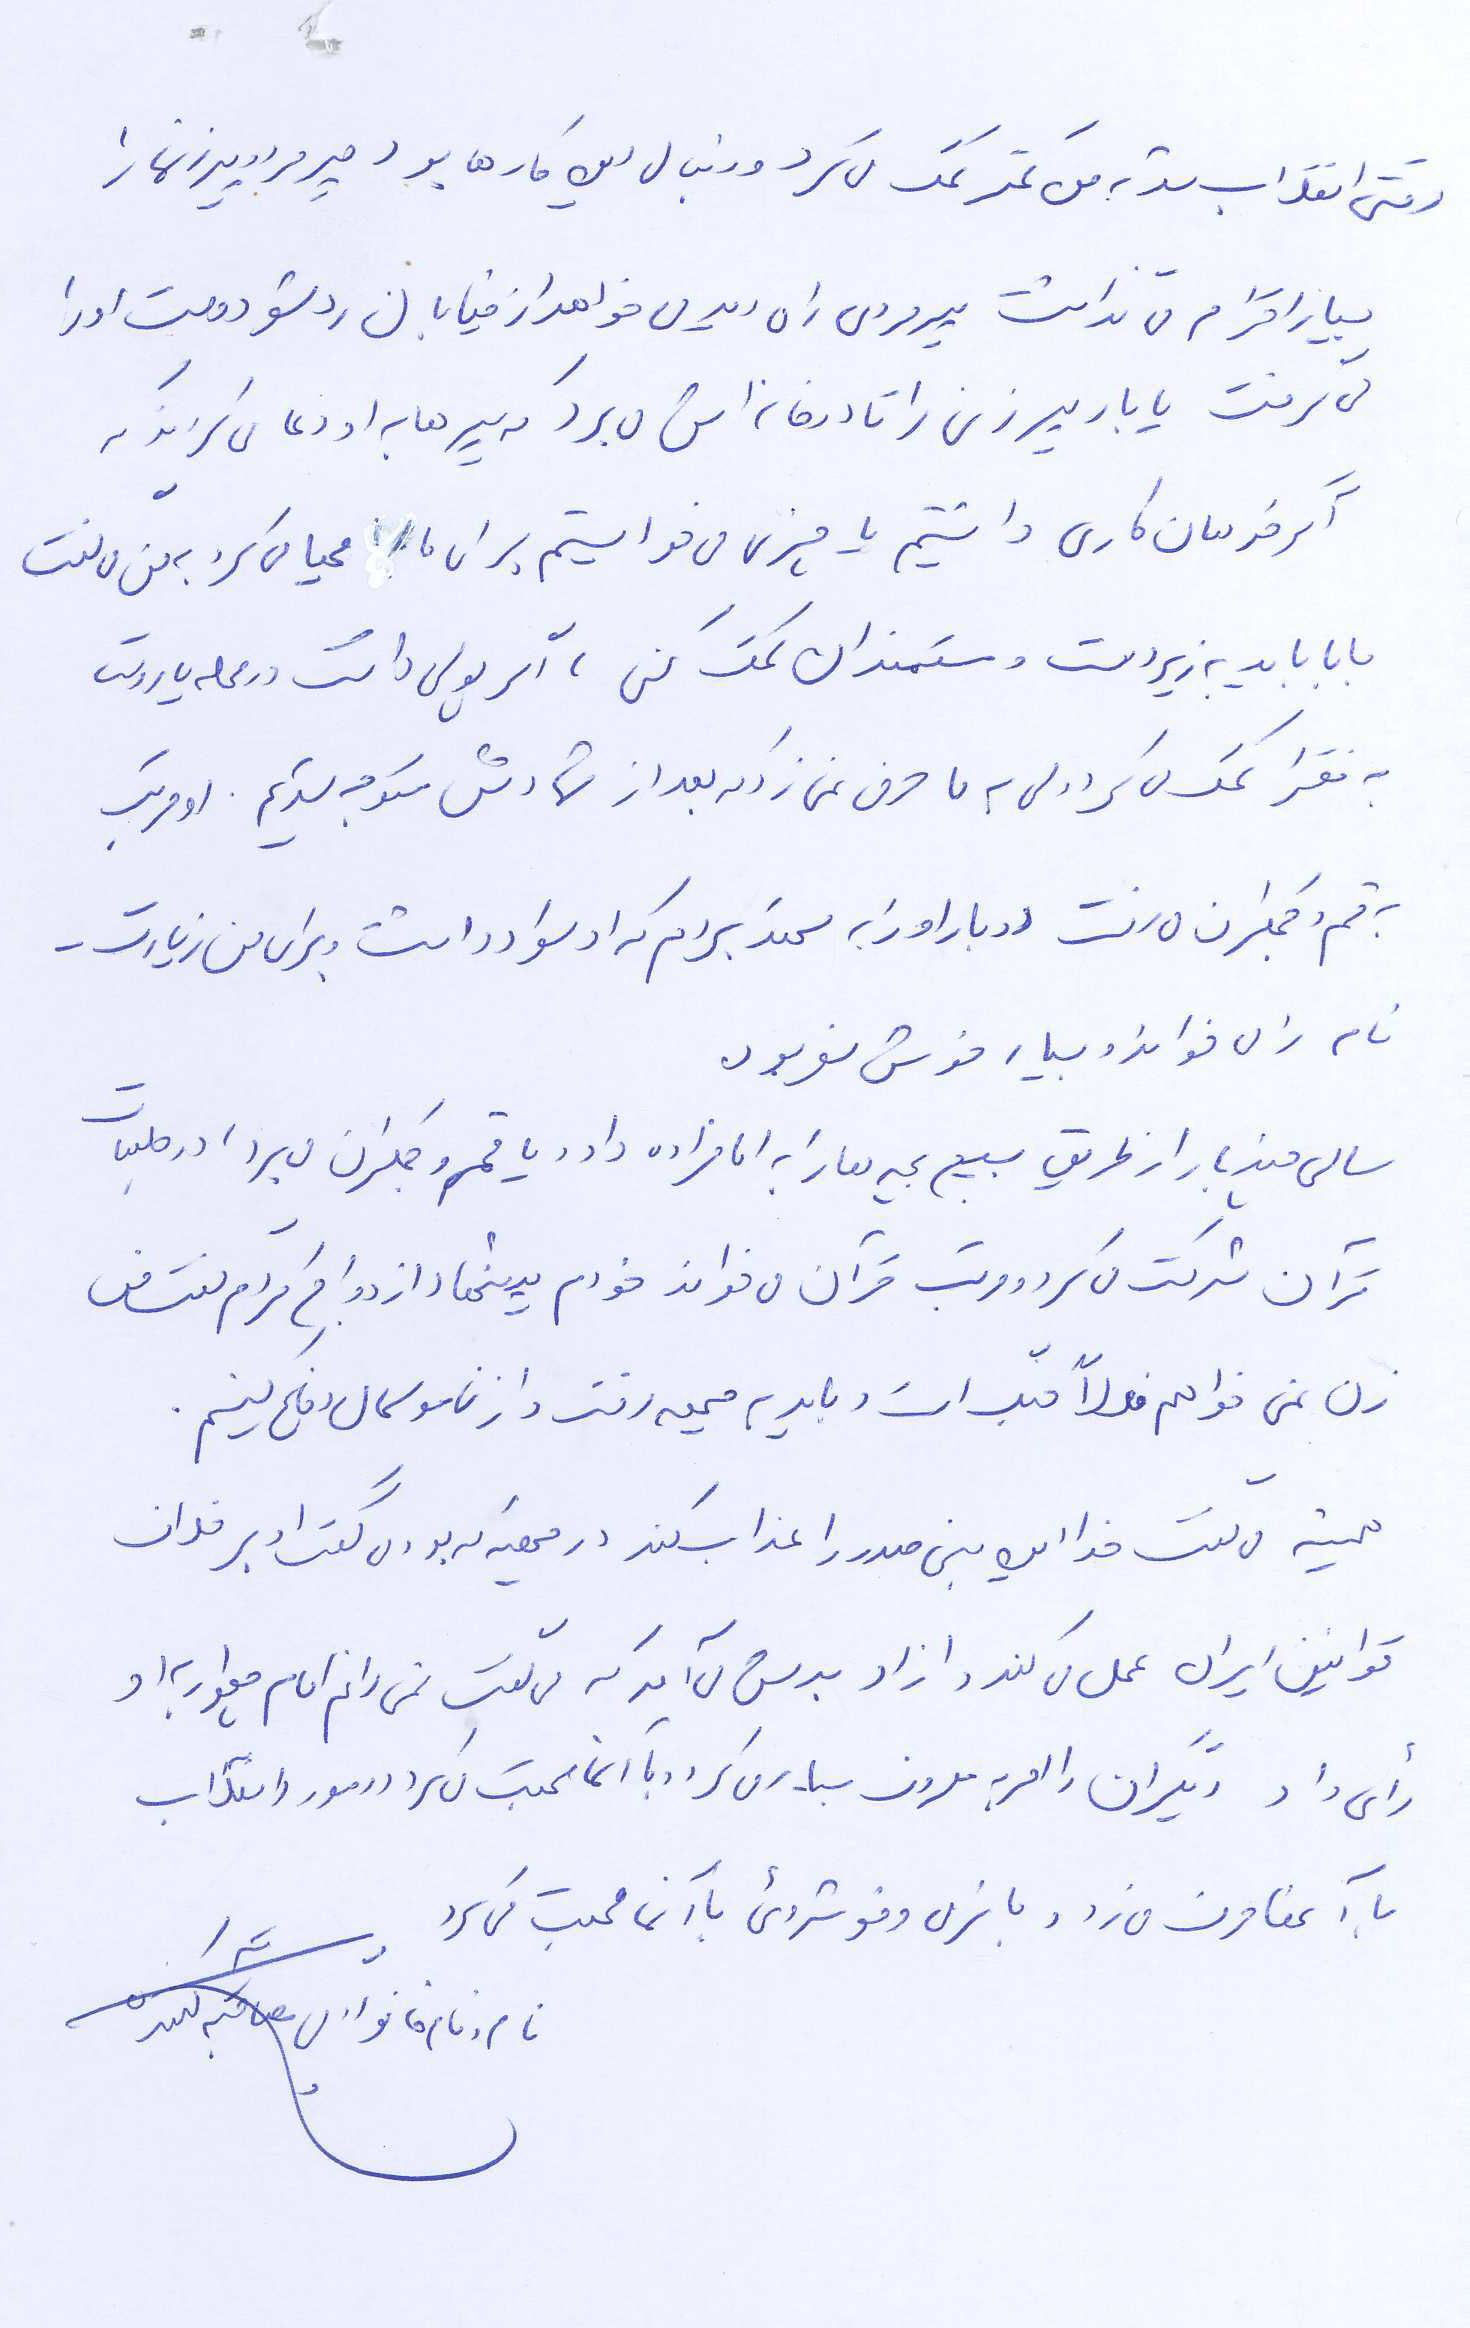 وقتی انقلاب شد به من کمتر کمک می کرد و دنبال این کارها بود پیرمرد و پیرزنها را
بسیار احترام می گذاشت پیرمردی را می دید می خواهد از خیابان رد شود دست او را
می گرفت یا بار پیرزنی را تا در خانه اش می برد که پیرها به او دعا می کردند که
اگر خودمان کاری داشتیم یا چیزی می خواستیم برای ما محیا می کرد به من می گفت
بابا باید به زیردست و مستمندان کمک کنی ، اگر پولی داشت در محله یا روست
به فقرا کمک می کرد ولی به ما حرف نمی زد که بعد از شهادتش متوجه شدیم . او مرتب
به قم و جمکران می رفت دو بار او را به مشهد بردم که او سواد داشت و برای من زیارت -
نامه را می خواند و بسیار خوش سفر بود
سالی چند بار از طریق بسیج بچه ها را به امامزاده داود یا قم و جمکران می برد ، در جلسات
قرآن شرکت می کرد و مرتب قرآن می خواند خودم پیشنهاد ازدواج کردم گفت من
زن نمی خواهم فعلاً جنگ است و باید به جبهه رفت و از ناموسمان دفاع کنیم .
همیشه می گفت خدا این بنی صدر را عذاب کند در جبهه که بود می گفت او بر خلاف
قوانین ایران عمل می کند و از او بدش می آید که می گفت نمی دانم امام چطور به او
رأی داد دیگران را امر به معروف بسیار می کرد و با آنها صحبت می کرد در مورد انقلاب
با آنها حرف می زد و با نرمی و خوشروئی با آنها صحبت می کرد
نام و نام خانوادگی مصاحبه کننده